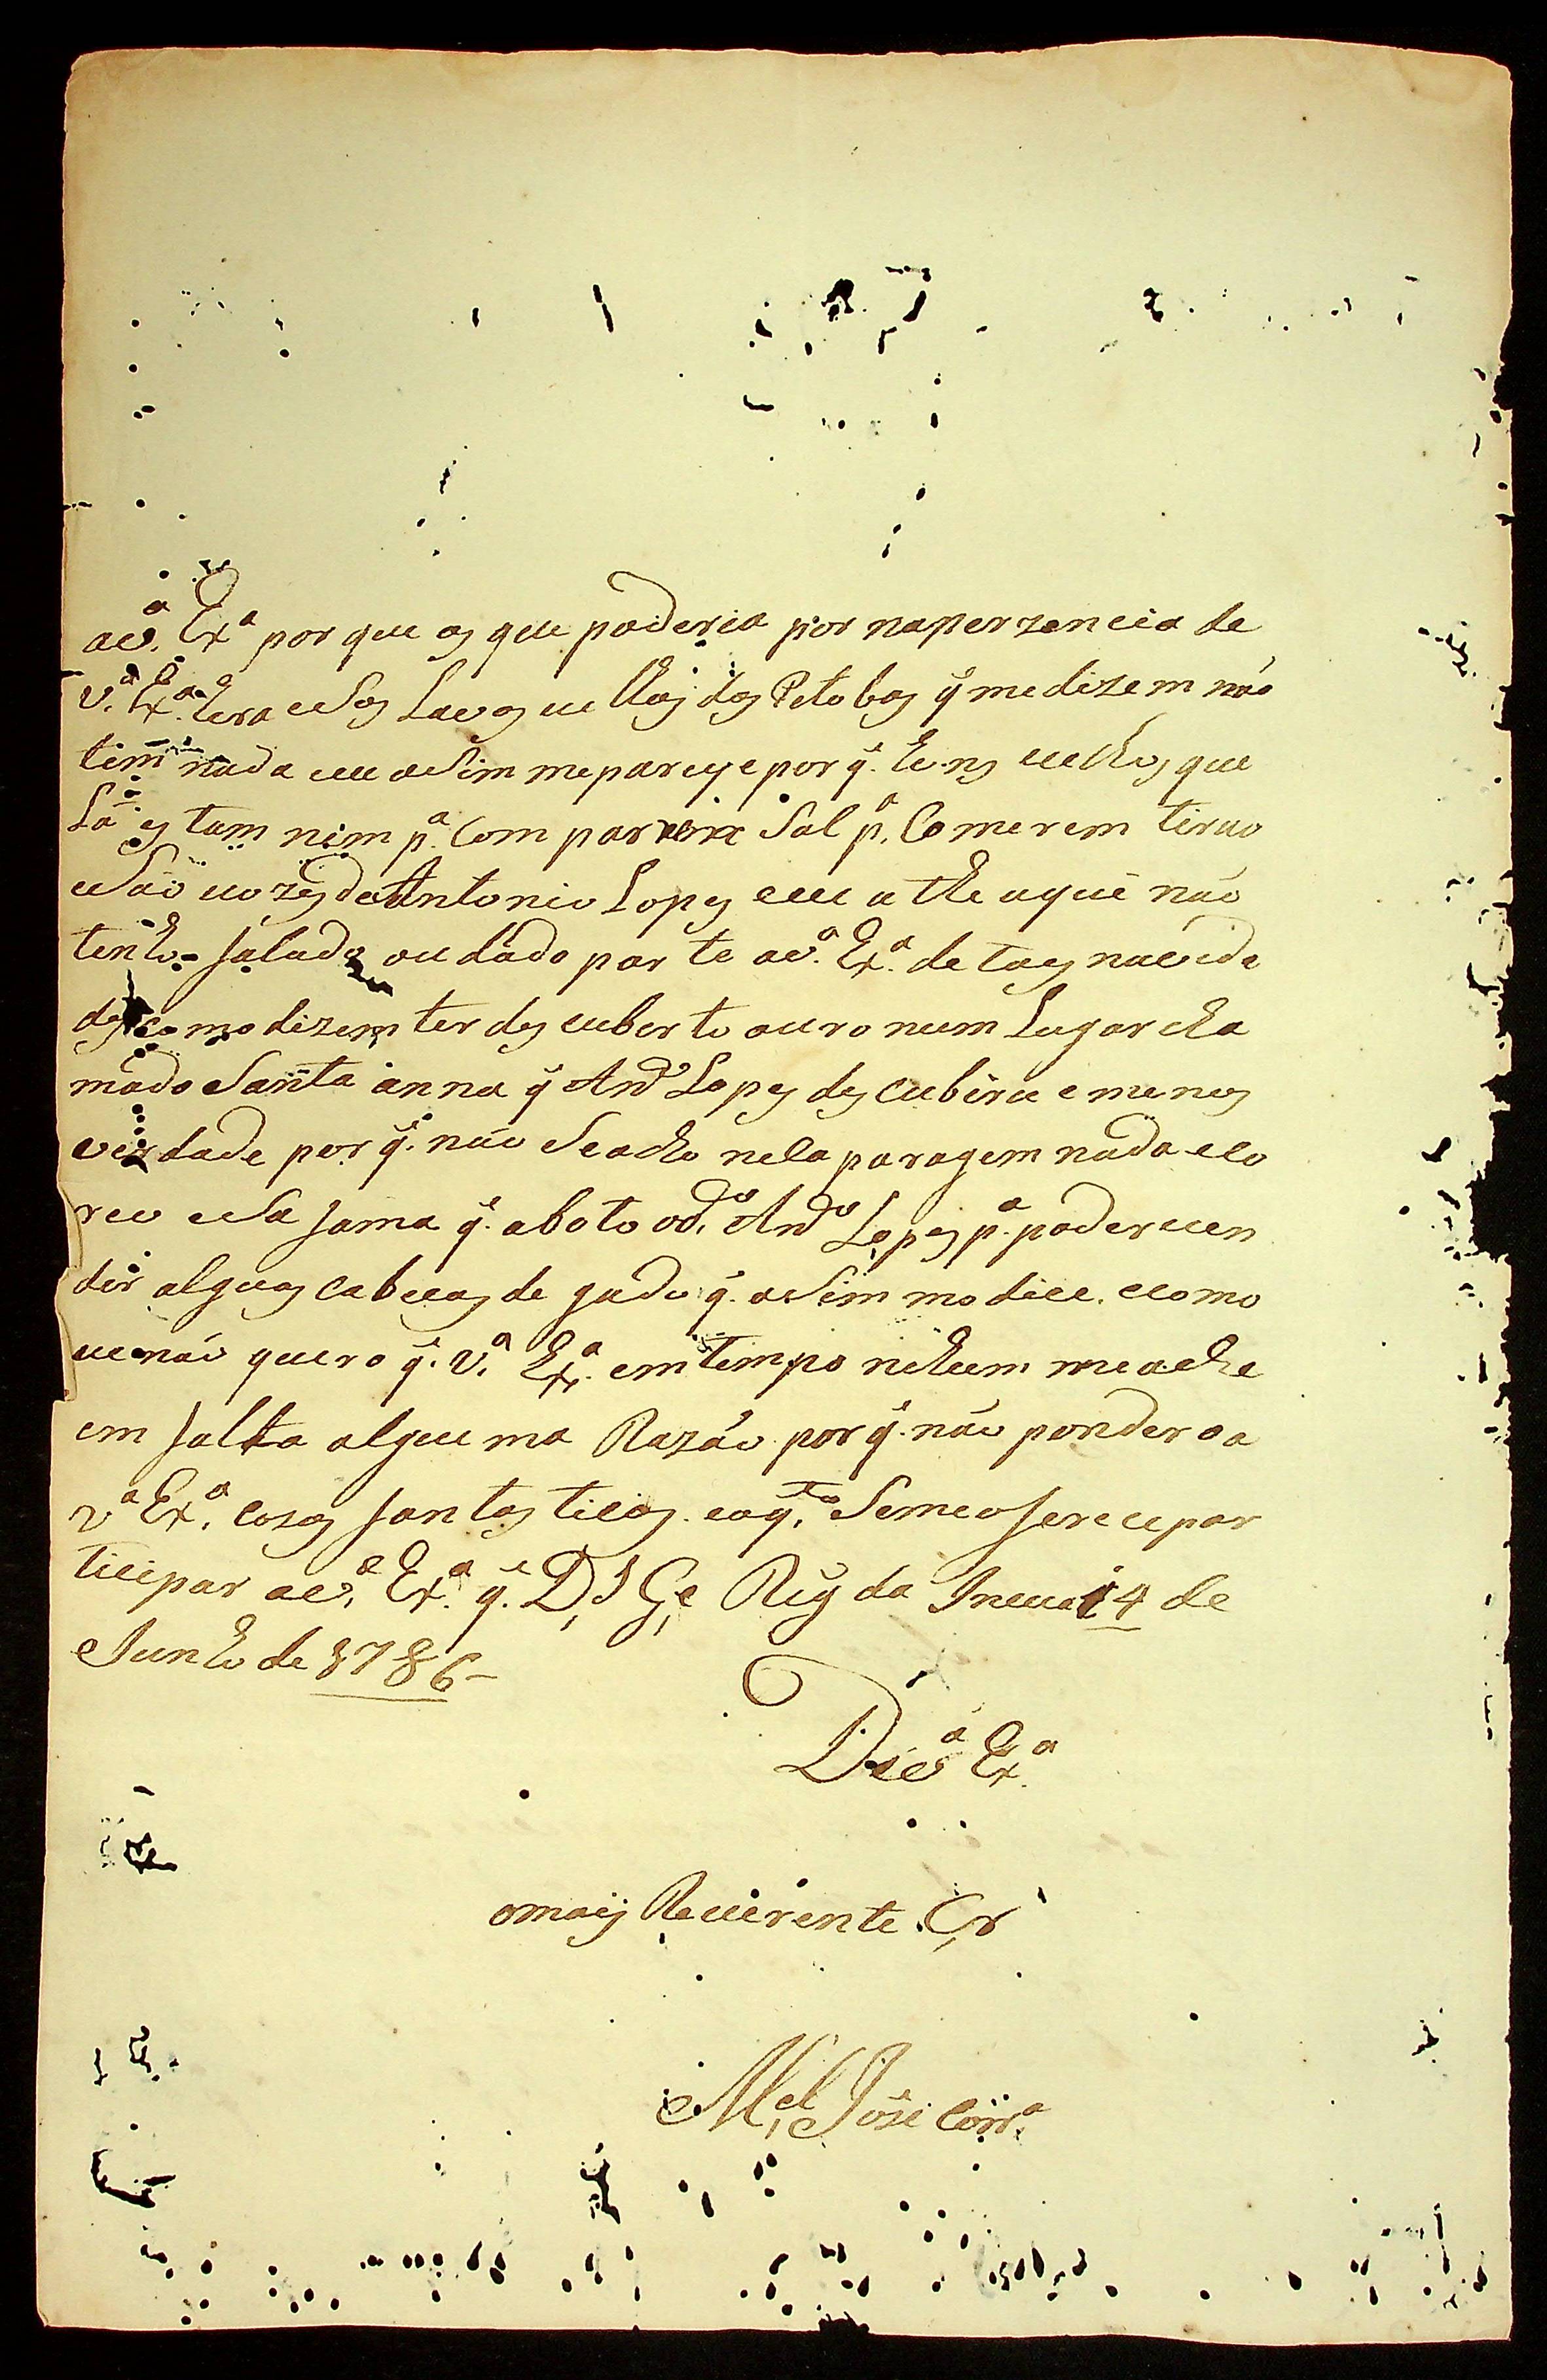 aV.ª Ex.ª por que os que poderia por naperzencia de
V.ª Ex.ª hera edos Lavos ue llhos dos Petobas q̃ me dizem não
tem nada eu asim me pareçe por q̃. hens uelhos que
Lá estam nim p.ª Com parem Sal p.ª Comerem tirao
e São uozes de Antonio Lopes eeu athe aqui não
tenho falado ou dado parte aV.ª Ex.ª de tas nuvida
des como dizem ter descuberto ouro num Lugar cha
mado Santa anna q̃ And.º Lopes descubiru e menos
verdade por q̃. não Seacho nela paragem nada elo
reo eSa fama q̃. aboto od.º And.º Lopes p.ª poder uen
der alguas cabecas de gado q̃. aSim mo dice. ecomo
eu não quero q̃. V.ª Ex.ª em tempo nihum me ache
em falta alguma Razão por q̃. não ponderoa
V.ª Ex.ª cosas fantasticas. eoq.to Semeoferece par
ticipar aV.ª Ex.ª q̃. D.s G.e Reg da Ineua 14 de
Junho de 1786
De V.ª Ex.ª
omais Reuerente Cr
M.el Jose Corr.ª